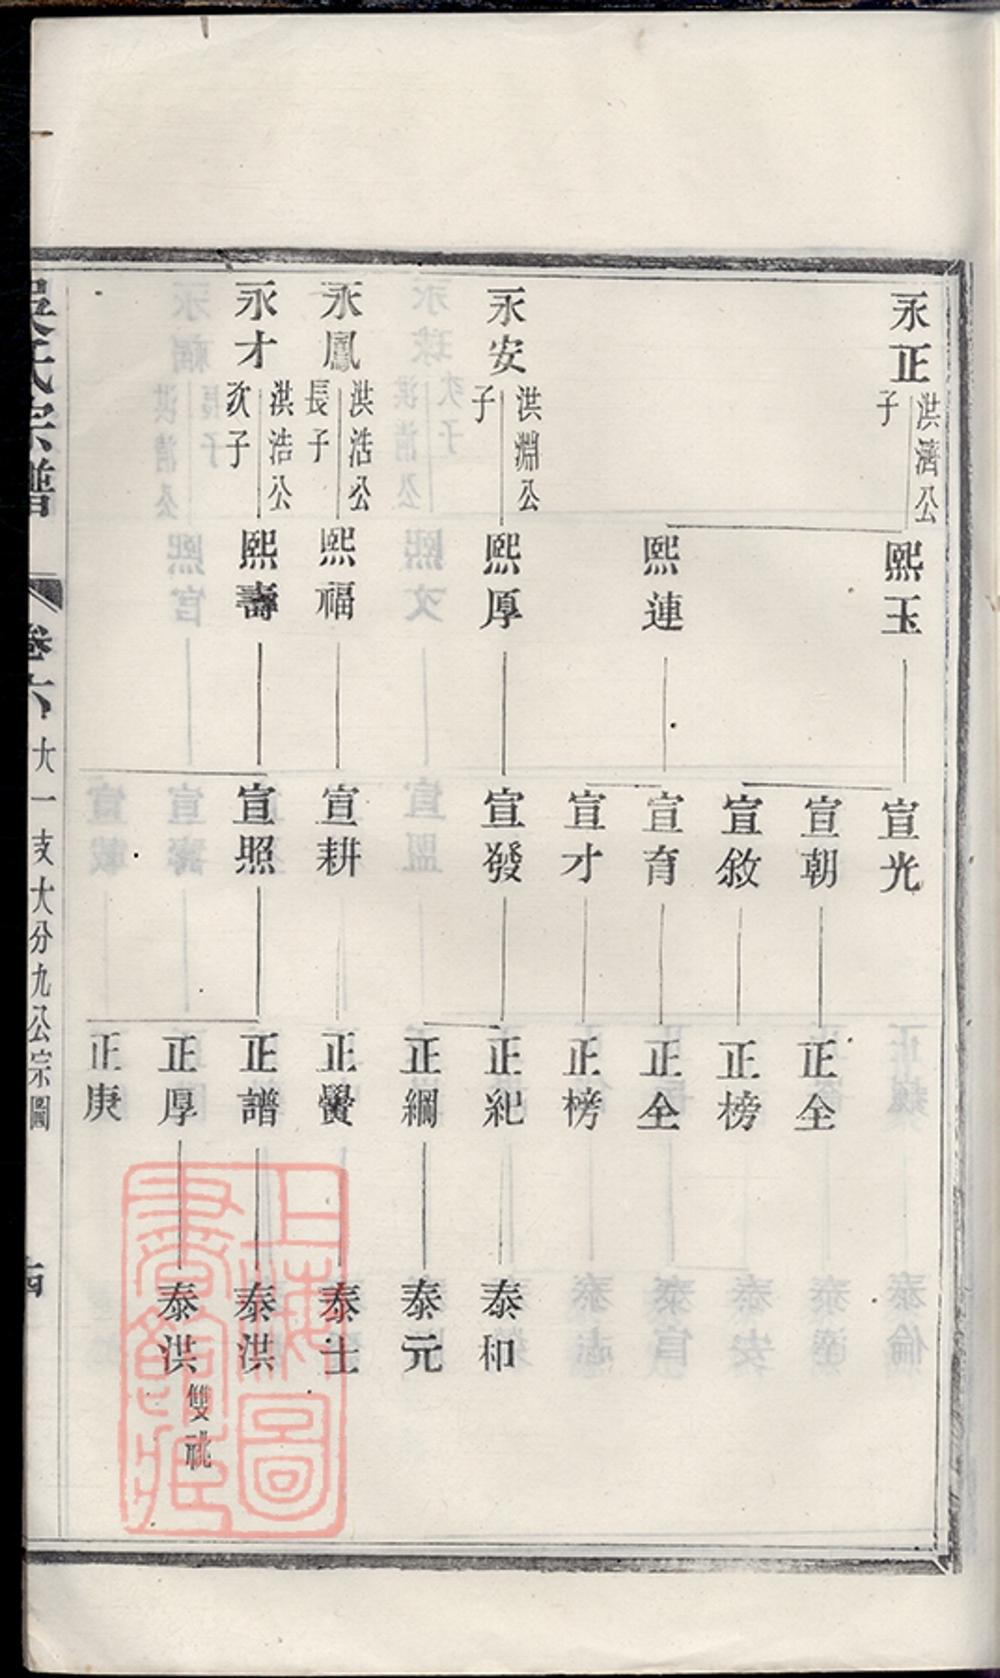 永正 洪濟公子
熙玉
宣光
宣朝
正全
宣敘
正榜
熙連
宣育
正全
宣才
正榜
永安 洪淵公子
熙厚
宣發
正紀
泰和
正綱
泰元
永鳳 洪浩公長子
熙福
宣耕
正黌
泰士
永才 洪浩公次子
熙壽
宣照
正譜
泰洪
正厚
泰洪 雙祧
正庚
吳氏宗譜
卷六 大一支大分九公宗圖
上海圖書館藏